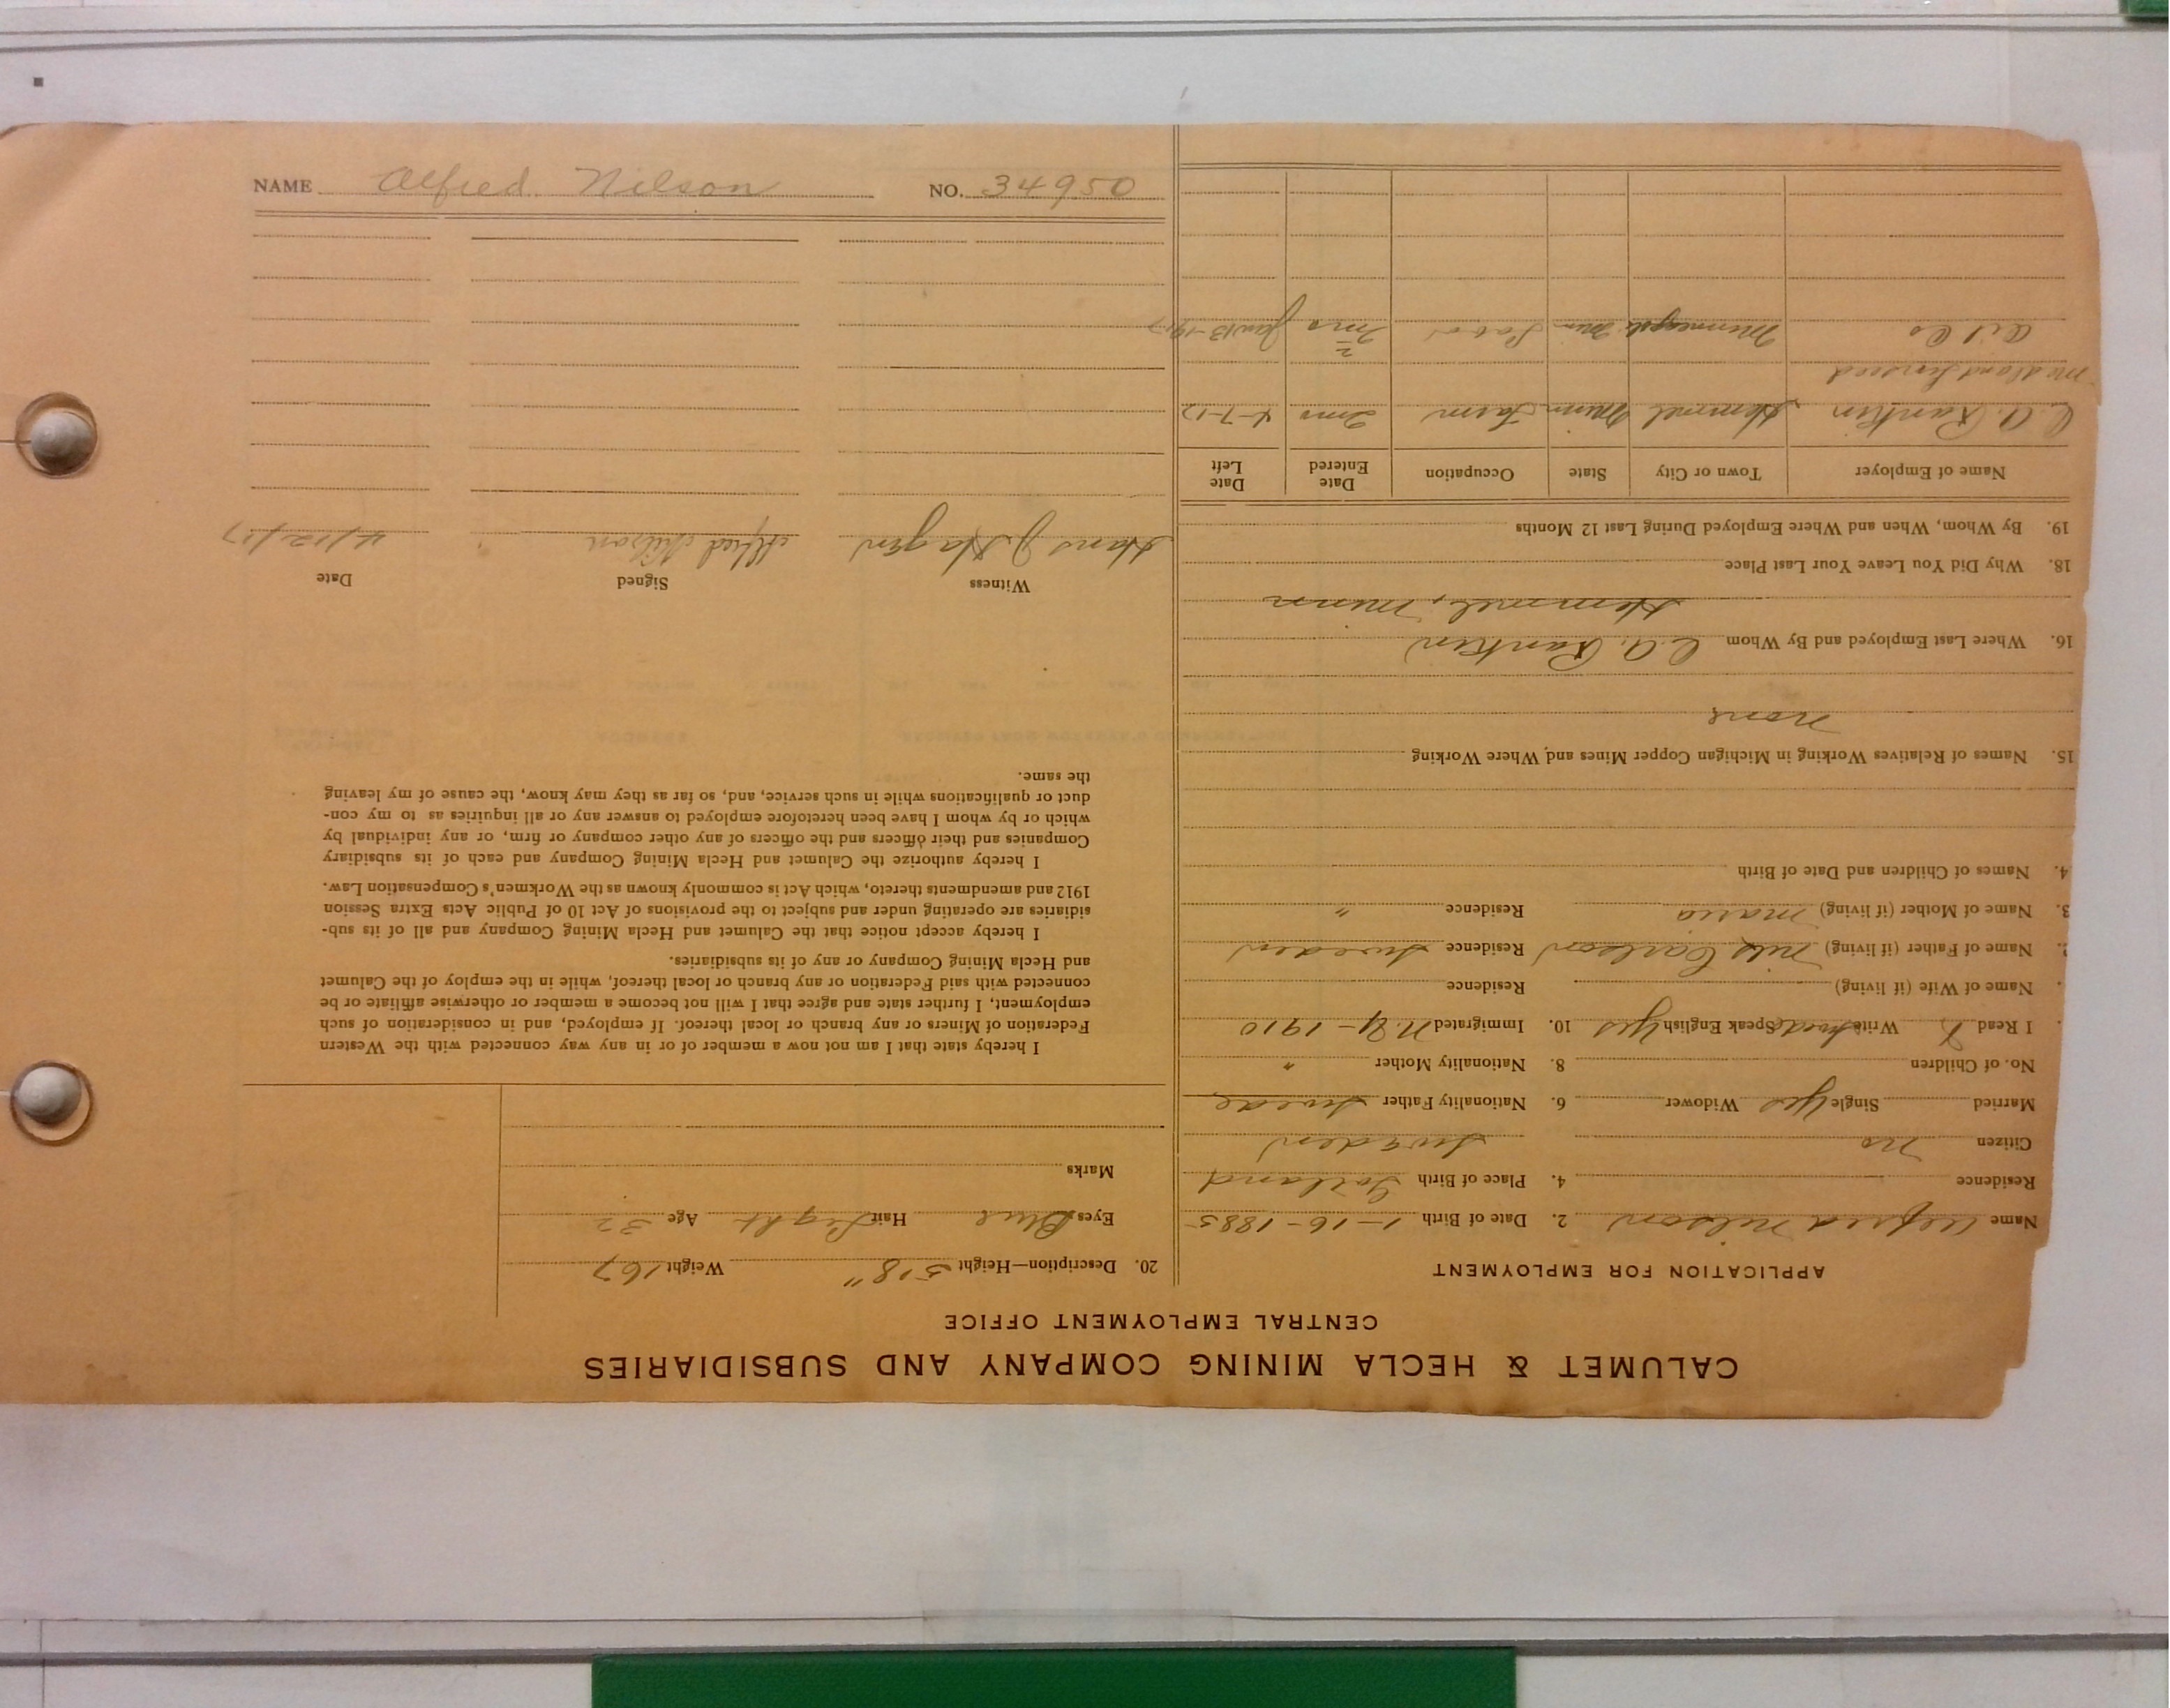 CALUMET & HECLA MINING COMPANY AND SUBSIDIARIES
CENTRAL EMPLOYMENT OFFICE
APPLICATION FOR EMPLOYMENT
Name Alfred Nilson 2. Date of Birth 1-16-1885
Residence 4. Place of Birth
Citizen no Sweden
Married Single Yes Widower 6. Nationality Father Swede
No. of Children 8. Nationality Mother "
I Read Write Speak English Yes 10. Immigrated N.Y - 1910
Name of Wife (if living) Residence
Name of Father (if living) Nils Carlson Residence Sweden
3. Name of Mother (if living) Maria Residence "
4. Names of Children and Date of Birth
15. Names of Relatives Working in Michigan Copper Mines and Where Working
none
16. Where Last Employed and By Whom C.A. Rankin
Hommel, Minn
18. Why Did You Leave Your Last Place
19. By Whom, When and Where Employed During Last 12 Months
Name of Employer Town or City State Occupation Date Entered Date Left
C.A. Rankin Hommel Minn Farm 2mo 4-7-17
Midland Linseed
Oil Co Minneapolis Minn Labor 2 mo Jan 13-1917
20. Description—Height 5'8" Weight 167
Eyes Blue Hair Light Age 32
Marks
I hereby state that I am not now a member of or in any way connected with the Western
Federation of Miners or any branch or local thereof. If employed, and in consideration of such
employment, I further state and agree that I will not become a member or otherwise affiliate or be
connected with said Federation or any branch or local thereof, while in the employ of the Calumet
and Hecla Mining Company or any of its subsidiaries.
I hereby accept notice that the Calumet and Hecla Mining Company and all of its sub-
sidiaries are operating under and subject to the provisions of Act 10 of Public Acts Extra Session
1912 and amendments thereto, which Act is commonly known as the Workmen's Compensation Law.
I hereby authorize the Calumet and Hecla Mining Company and each of its subsidiary
Companies and their officers and the officers of any other company or firm, or any individual by
which or by whom I have been heretofore employed to answer any or all inquiries as to my con-
duct or qualifications while in such service, and, so far as they may know, the cause of my leaving
the same.
Witness Signed Date
Hans J. Hagen Alfred Nilson 4/12/17
NAME Alfred Nilson NO. 34950